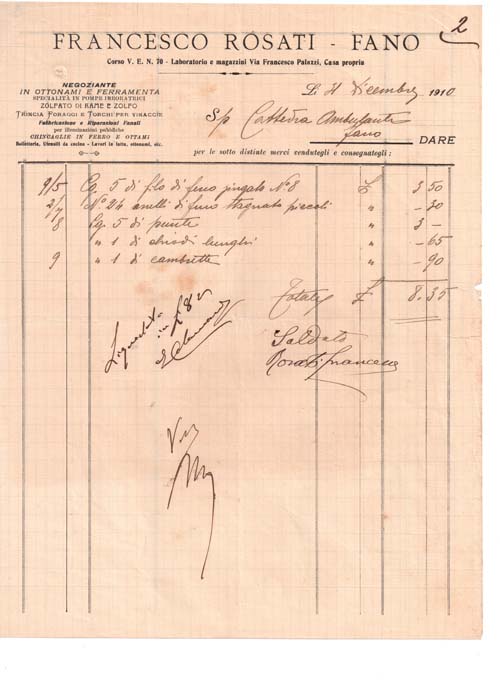 2
FRANCESCO ROSATI - FANO
Corso V. E. N. 70 - Laboratorio e magazzini Via Francesco Palazzi, Casa propria
NEGOZIANTE
IN OTTONAMI E FERRAMENTA
SPECIALITÀ IN POMPE IRRORATRICI
ZOLFATO DI RAME E ZOLFO
TRINCIA FORAGGI E TORCHI PER VINACCIE
Fabbricazione e Riparazioni Fanali
per illuminazioni pubbliche
CHINCAGLIE IN FERRO E OTTAMI
Bolletteria, Utensili da cucina - Lavori in latta, ottonami, ecc.
Lì 21 Dicembre 1910
S/p Cattedra Ambulante
Fano
DARE
per le sotto distinte merci vendutegli e consegnategli:
9/5 Cg. 5 di filo di ferro zingato No 8 £ 3 50
2/7 No 24 anelli di ferro piccoli " - 30
8 Cg. 5 di punte " 3 -
" 1 di chiodi lunghi " - 65
9 " 1 di cambrette " - 90
Totale £ 8.35
Liquidata
in £ 8
Saldato
Rosati Francesco